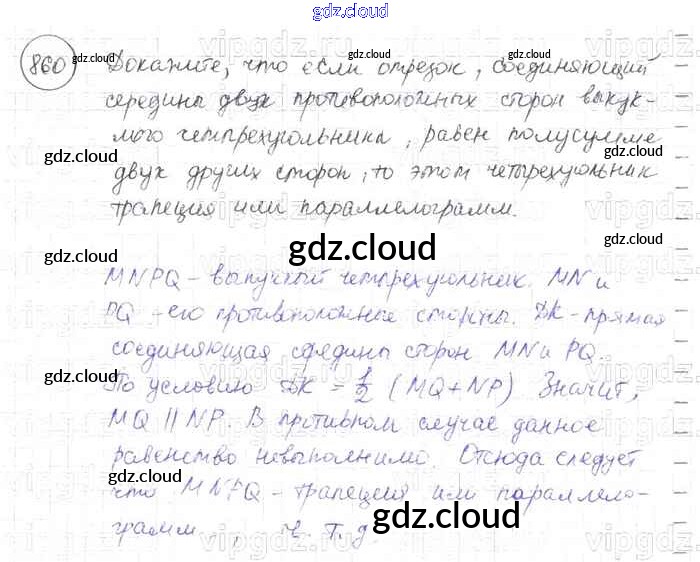 gdz.cloud
860 Докажите, что если отрезок, соединяющий
середины двух противоположных сторон выпук-
лого четырехугольника, равен полусумме
двух других сторон, то этот четырехугольник
трапеция или параллелограмм.
gdz.cloud
MNPQ - выпуклый четырехугольник. MN и
PQ - его противоположные стороны. DK - прямая
соединяющая середины сторон MN и PQ.
По условию DK = 1/2 (MQ+NP) Значит,
MQ || NP. В противном случае данное
равенство невыполнимо. Отсюда следует
что MNPQ - трапеция или параллело-
грамм, ч. т. д.
gdz.cloud